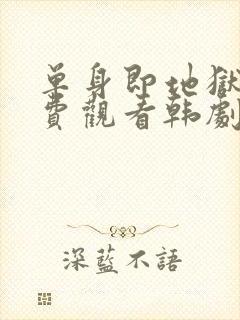 單身即地獄
費觀看韩劇
深藍不語